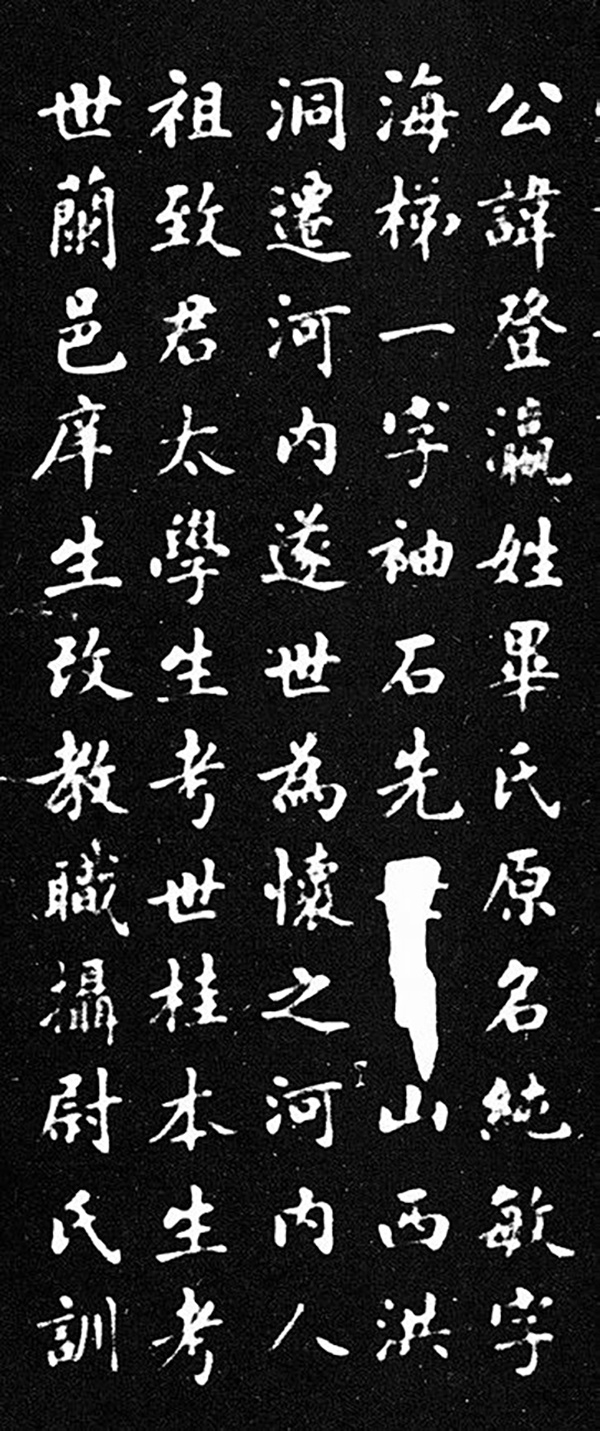 公諱登瀛姓畢氏原名純敏字
海梯一字袖石先山西洪
洞遷河内遂世為懷之河内人
祖致君太學生考世桂本生考
世蘭邑庠生改教職攝尉氏訓